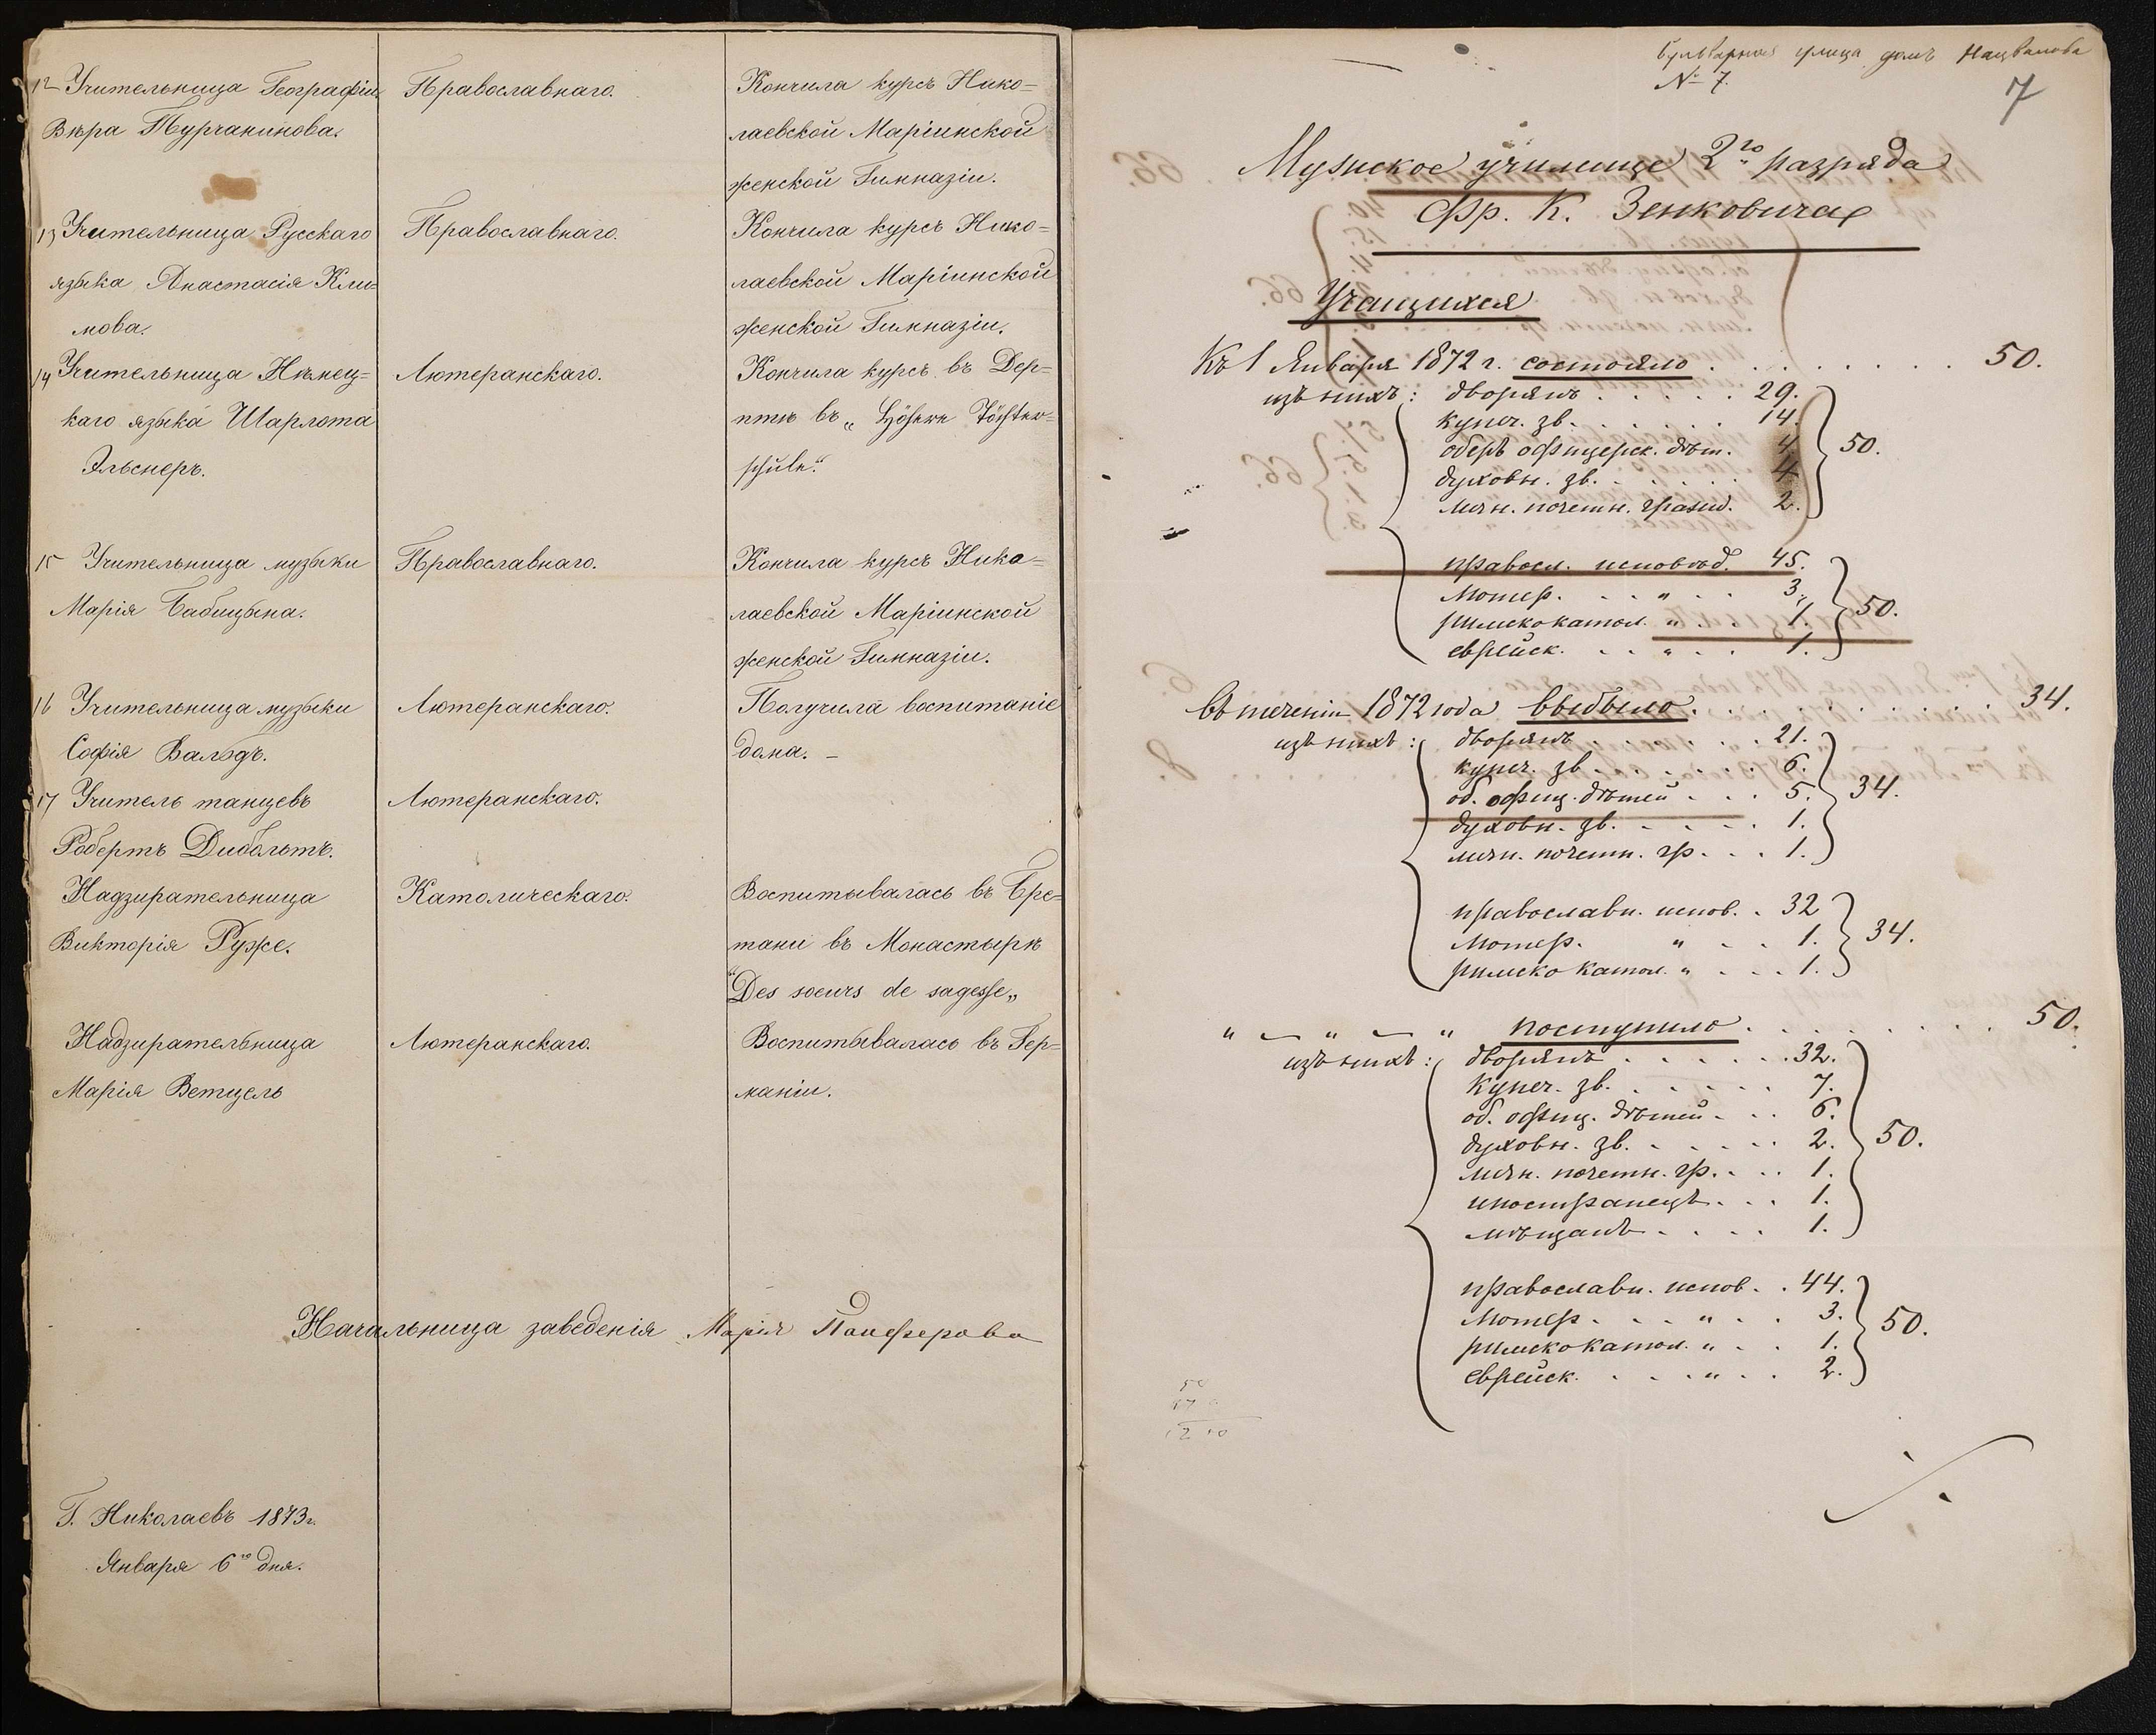 12 Учительница Географіи
Вѣра Турчанинова.
Православнаго.
Кончила курсъ Нико=
лаевской Маріинской
женской Гимназіи.
13 Учительница Русскаго
языка Анастасія Кли=
мова.
Православнаго.
Кончила курсъ Нико=
лаевской Маріинской
женской Гимназіи.
14 Учительница Нѣмец=
каго языка Шарлота
Эльснеръ.
Лютеранскаго.
Кончила курсъ въ Дер=
птѣ въ „Höhere Töchter=
schule“.
15 Учительница музыки
Марія Бабицына.
Православнаго.
Кончила курсъ Нико=
лаевской Маріинской
женской Гимназіи.
16 Учительница музыки
Софія Вальдъ.
Лютеранскаго.
Получила воспитаніе
дома. –
17 Учитель танцевъ
Робертъ Дибольтъ.
Лютеранскаго.
Надзирательница
Викторія Руже.
Католическаго.
Воспитывалась въ Бре=
тани въ Монастырѣ
"Des soeurs de sagesse„
Надзирательница
Марія Ветцель
Лютеранскаго.
Воспитывалась въ Гер=
маніи.
Начальница заведенія Марія Панферова
Г. Николаевъ 1873 г.
Января 6го дня.
Бульварная улица домъ
№ 7.
7
Мужское училище 2го разряда
Фр. К. Зенковича
Учащихся
Къ 1 Января 1872 г. состояло . . . . . . . 50.
изъ нихъ: дворянъ . . . . . 29.
купеч. зв. . . . . . . 14.
оберъ офицерск. дѣт. 4.
духовн. зв. . . . . . 4.
личн. почетн. гражд. 2.
50.
правосл. исповѣд. 45.
лютер. . . . „ . . 3.
римско катол. „ . . 1.
еврейск. . . „ . . 1.
50.
Въ теченіи 1872 года выбыло . . . . . . . . . . 34.
изъ нихъ: дворянъ . . . . . . 21.
купеч. зв. . . . . . . 6.
об. офиц. дѣтей . . . 5.
духовн. зв. . . . . . 1.
личн. почетн. гр. . . 1.
34.
православн. испов. . 32
лютер. „ . . 1.
римско катол. „ . . . 1.
34.
„ — „ — „ поступило . . . . . . . . 50.
изъ нихъ: дворянъ . . . . . . 32.
купеч. зв. . . . . . 7.
об. офиц. дѣтей . . . 6.
духовн. зв. . . . . . 2.
личн. почетн. гр. . . . 1.
иностранецъ . . . 1.
мѣщанъ . . . . 1.
50.
православн. испов. . 44.
лютер. . . . „ . . 3.
римско катол. „ . . 1.
еврейск. . . . „ . . 2.
50.